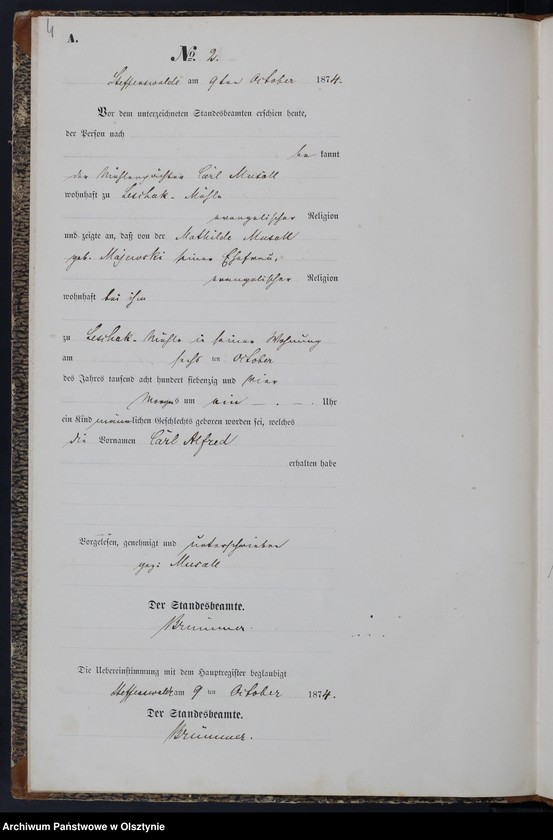 4
A.
No. 2.
Steffenswalde am 9ten October 1874.
Vor dem unterzeichneten Standesbeamten erschien heute,
der Person nach
be kannt
der Mühlenpächter Carl Musall
wohnhaft zu Leschak-Mühle
evangelischer Religion
und zeigte an, daß von der Mathilde Musall
geb. Majewski seiner Ehefrau,
evangelischer Religion
wohnhaft bei ihm
zu Leschak-Mühle in seiner Wohnung
am sechs ten October
des Jahres tausend acht hundert siebenzig und vier
Morgens um ein — . — . Uhr
ein Kind männlichen Geschlechts geboren worden sei, welches
die Vornamen Carl Alfred
erhalten habe
Vorgelesen, genehmigt und unterschrieben
gez: Musall
Der Standesbeamte.
Brümmer.
Die Uebereinstimmung mit dem Hauptregister beglaubigt
Steffenswalde am 9 ten October 1874.
Der Standesbeamte.
Brümmer.
Archiwum Państwowe w Olsztynie